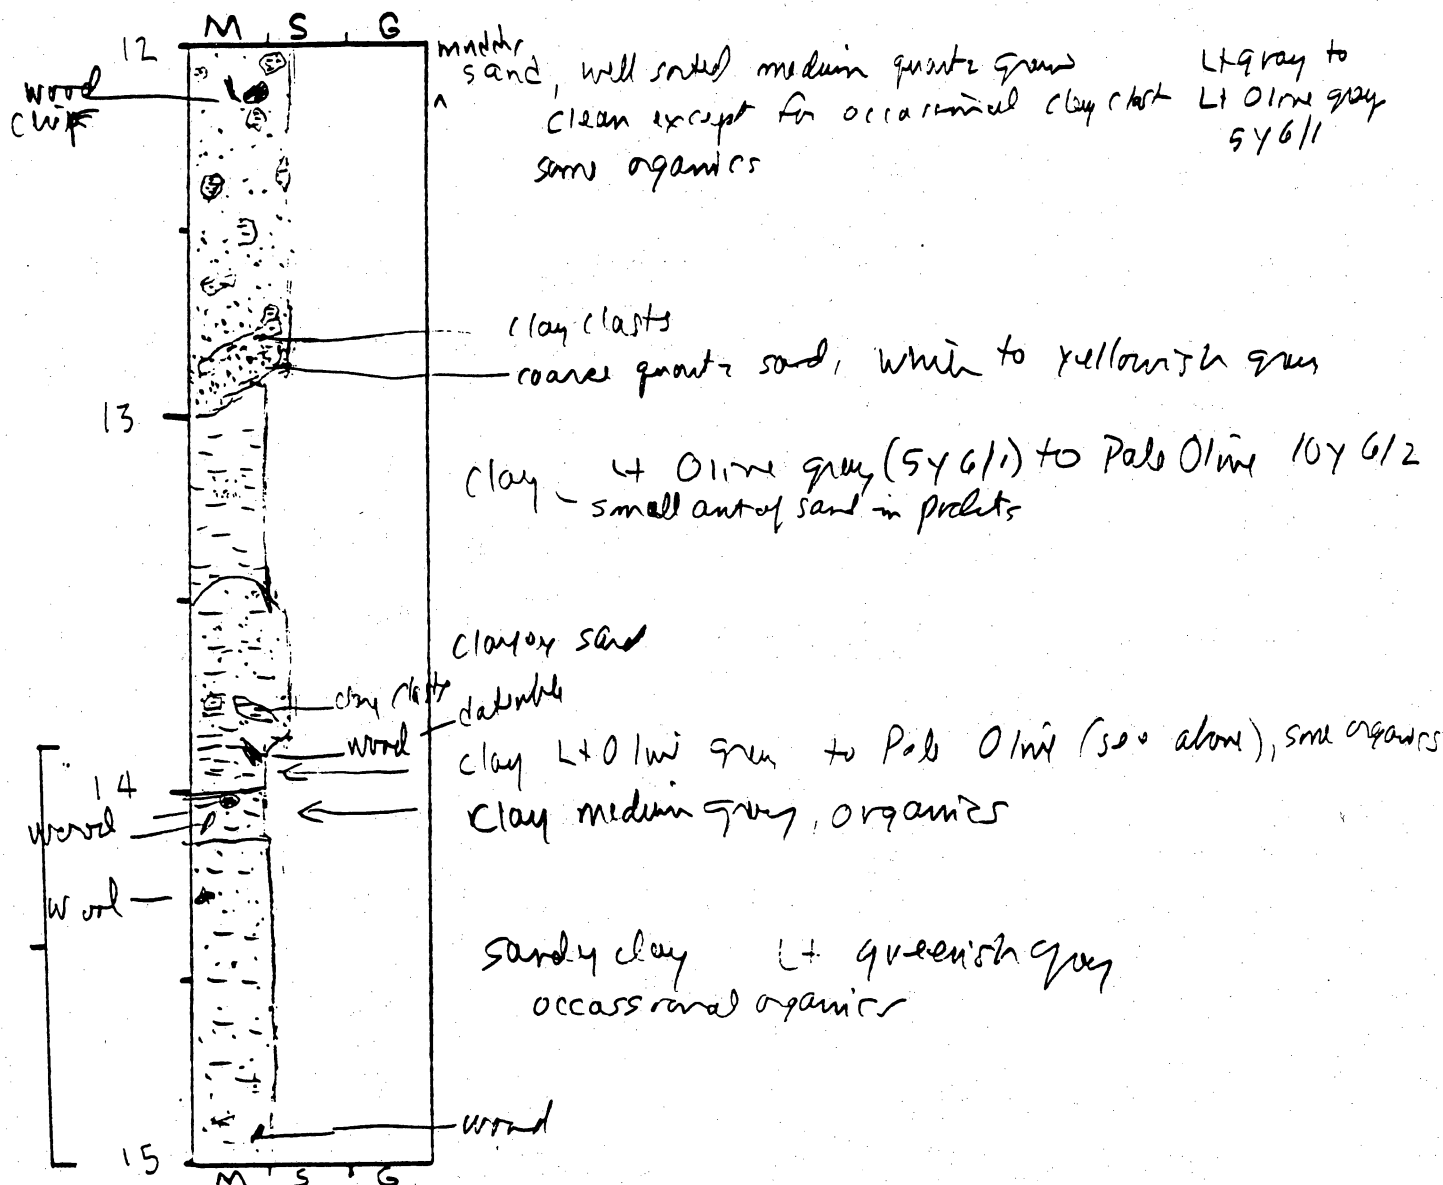 M S G
12
muddy
sand, well sorted medium quartz grains Lt gray to
wood
chip
clean except for occasional clay clast Lt Olive gray
5Y6/1
some organics
clay clasts
coarse quartz sand, white to yellowish gray
13
clay Lt Olive gray (5Y6/1) to Pale Olive 10Y 6/2
- small amt of sand in pockets
clayey sand
clay clasts
datable
wood
clay Lt Olive gray to Pale Olive (see above), some organics
14
clay medium gray, organics
wood
wood
sandy clay Lt greenish gray
occassional organics
wood
15
M S G